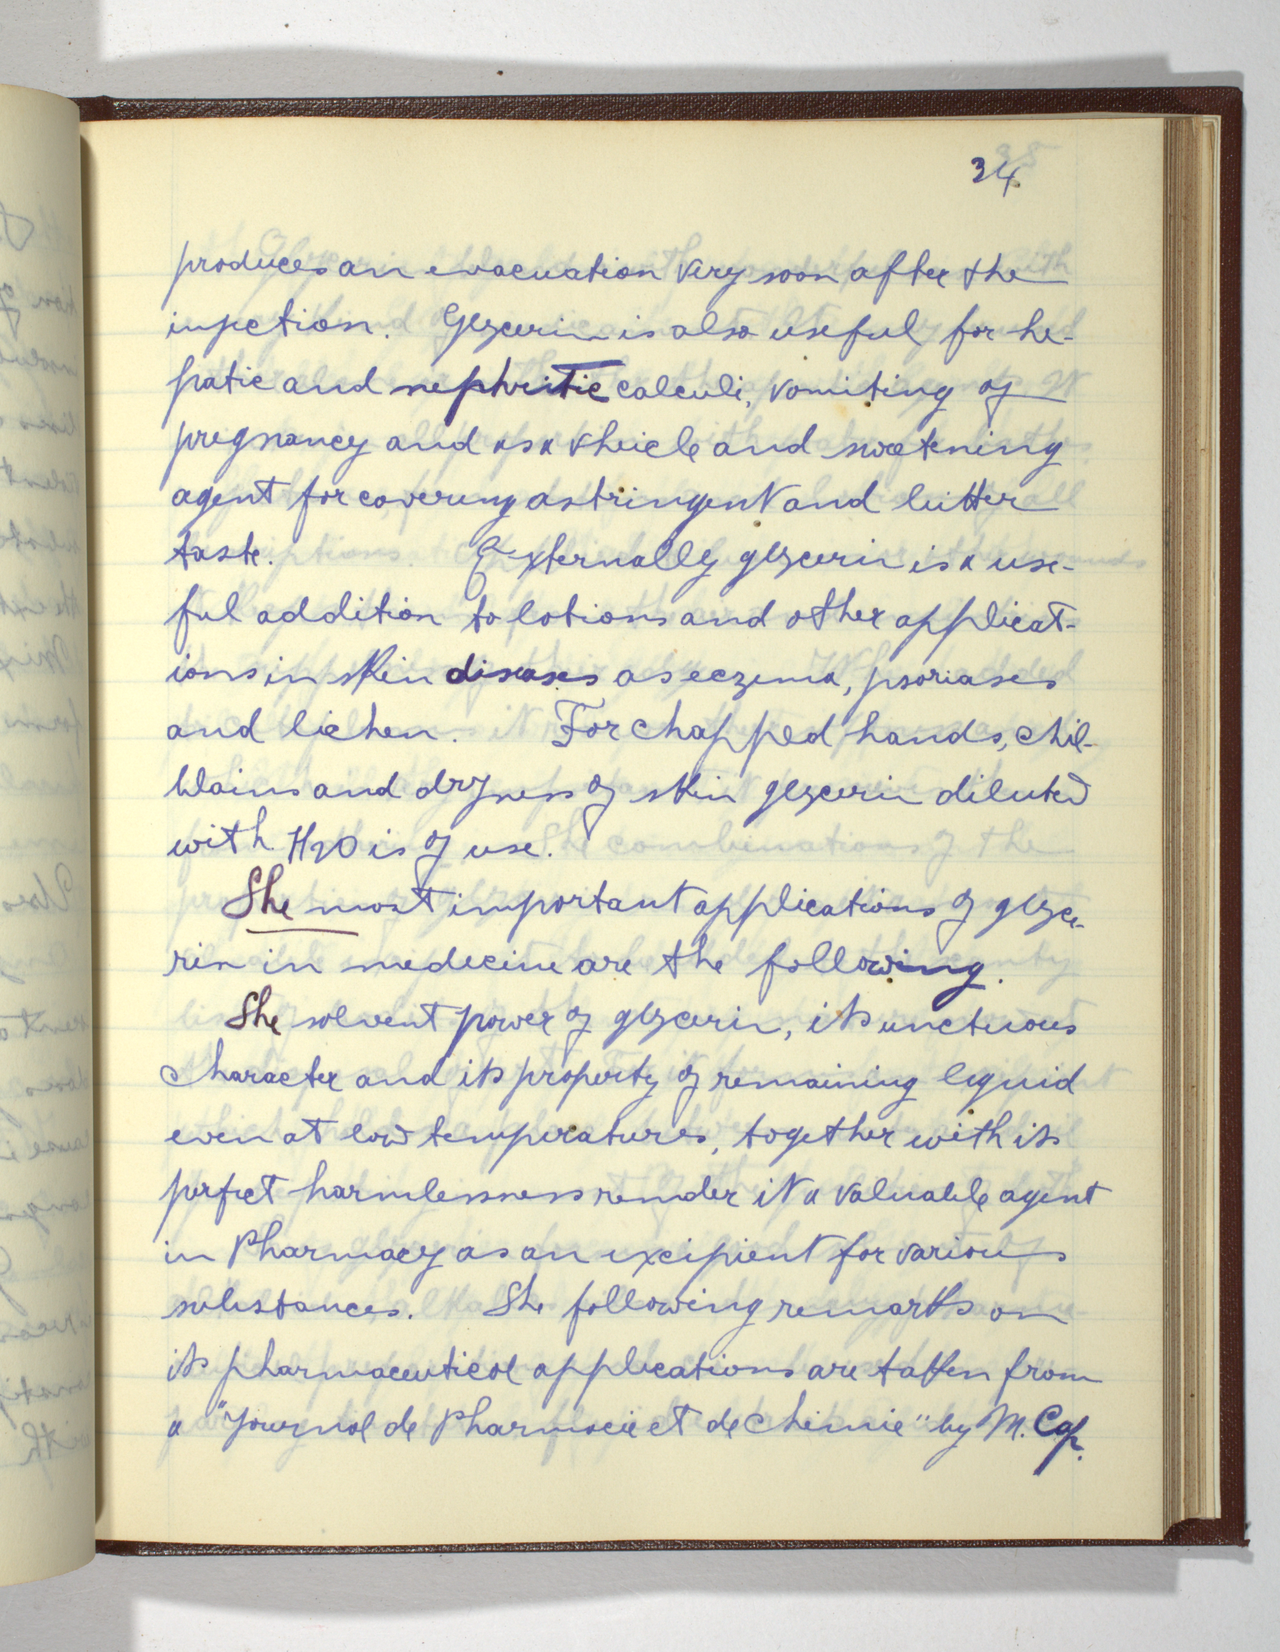 34
produces an evacuation very soon after the
injection. Glycerin is also useful for he-
patic and nephritic calculi, vomiting of
pregnancy and as a vheicle and sweetening
agent for covering astringent and bitter
taste. Externally glycerin is a use-
ful addition to lotions and other applicat-
ions in skin diseases as eczema, psoriases
and lichen. For chapped hands, chil-
blains and dryness of skin glycerin diluted
with H2O is of use.
The most important applications of glyce-
rin in medecine are the following.
The solvent power of glycerin, its unctuous
character and its property of remaining liquid
even at low temperatures, together with its
perfect harmlessness render it a valuable agent
in Pharmacy as an excipient for various
substances. The following remarks on
its pharmaceutical applications are taken from
a "Journal de Pharmacie et de Chimie" by M. Cap.